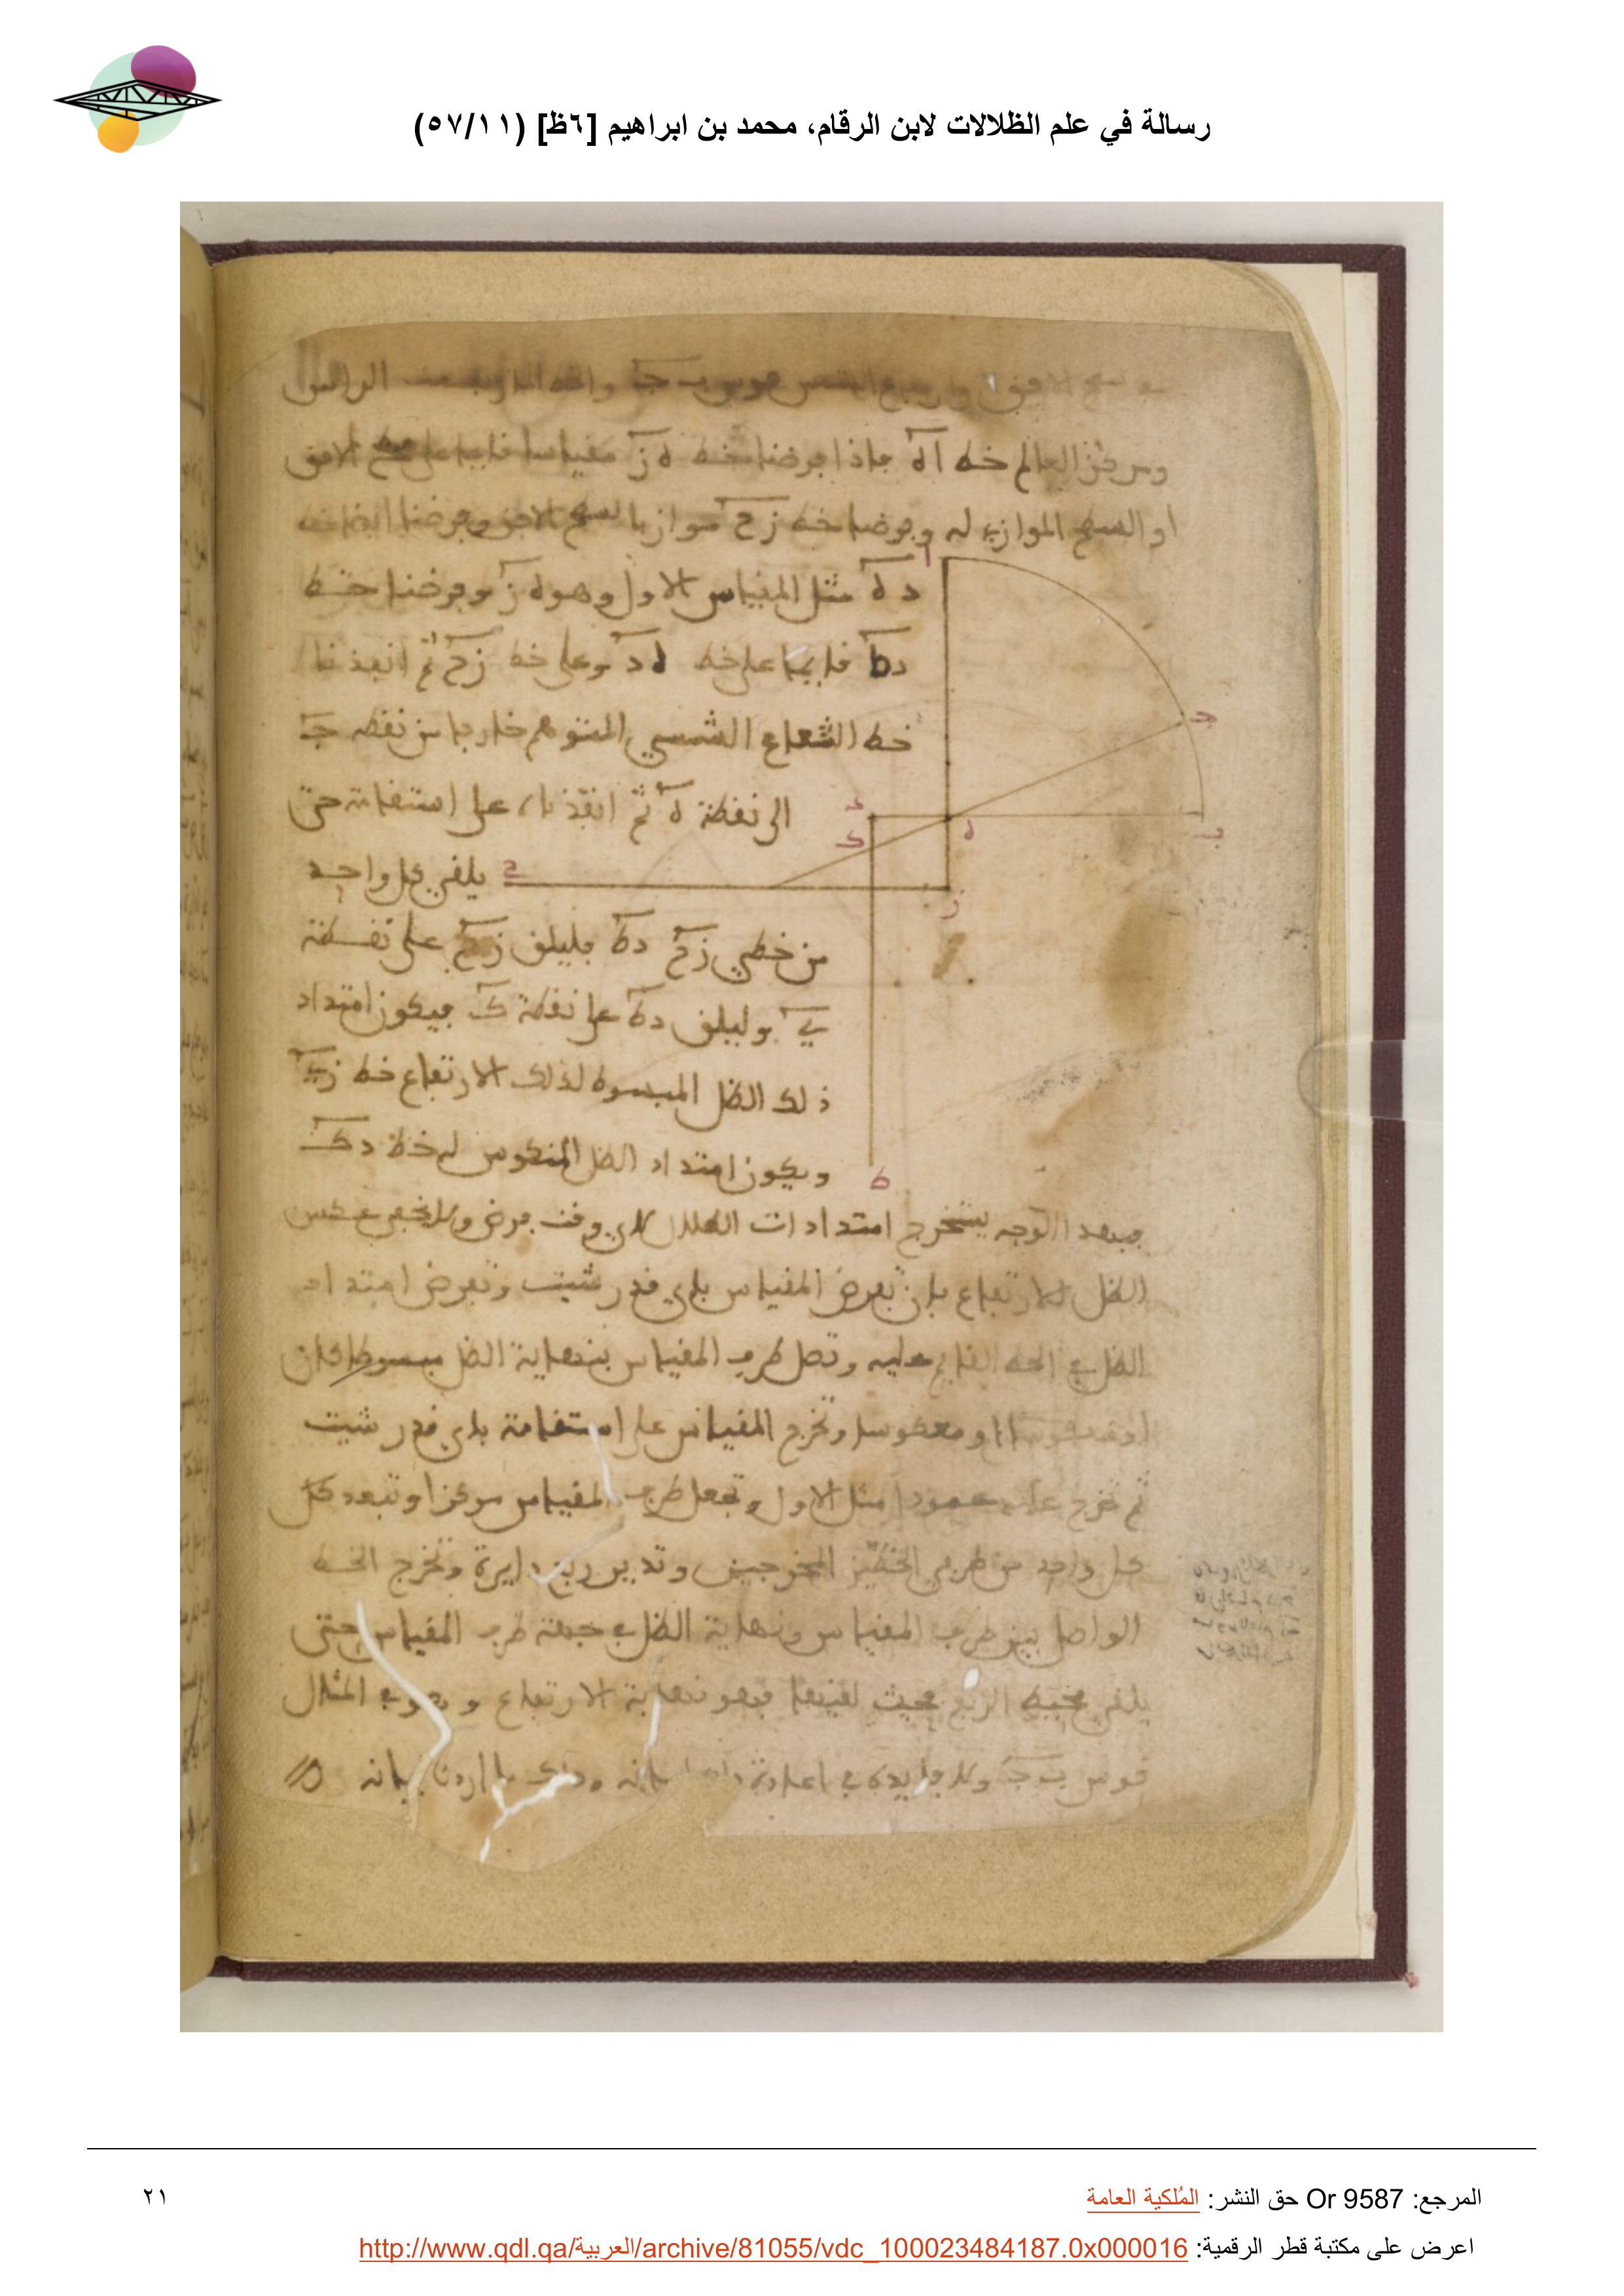 رسالة في علم الظلالات لابن الرقام، محمد بن ابراهيم [٦ظ] (٥٧/١١)
الراس
ومركز العالم خط اه فاذا فرضنا خط ه ز مقياسا قايما على سطح الافق
او السطح الموازي له وفرضنا خط زح موازيا لسطح الافق وفرضنا ايضا خط
ا
د ه مثل المقياس الاول وهو ه ز وفرضنا خط
دط قايما على خط ه د وعلى خط زح ثم انفذنا
خط الشعاع الشمسي المتوهم خارجا من نقطة ج
ج
الى نقطة ه ثم انفذناه على استقامة حتى
د
ك
ه
ب
يلقى كل واحد
ح
ز
من خطي زح دط فليلق زح على نقطة
ي وليلق دط على نقطة ك فيكون امتداد
ذلك الظل المبسوط لذلك الارتفاع خط زي
ويكون امتداد الظل المنكوس له خط دك
ط
فبهذا الوجه يستخرج امتدادات الظلال لاي وقت فرض ولا يخفى عكس
الظل للارتفاع بان تفرض المقياس باي قدر شيت وتفرض امتداد
الظل في الخط القايم عليه وتصل طرف المقياس بنهاية الظل مبسوطا كان
او معكوسا وتخرج المقياس على استقامة باي قدر شيت
ثم تخرج عليه عمودا مثل الاول وتجعل طرف المقياس مركزا وتبعد كل
كل واحد من طرفي الخطين المخرجين وتدير ربع دايرة وتخرج الخط
الواصل بين طرف المقياس ونهاية الظل في جهة طرف المقياس حتى
يلقى محيط الربع فحيث لقيها فهو نهاية الارتفاع وهو في المثال
قوس ب ج ولا فايدة في اعادة وذلك ما اردنا بيانه
المرجع: Or 9587 حق النشر: المُلكية العامة
٢١
اعرض على مكتبة قطر الرقمية: http://www.qdl.qa/العربية/archive/81055/vdc_100023484187.0x000016